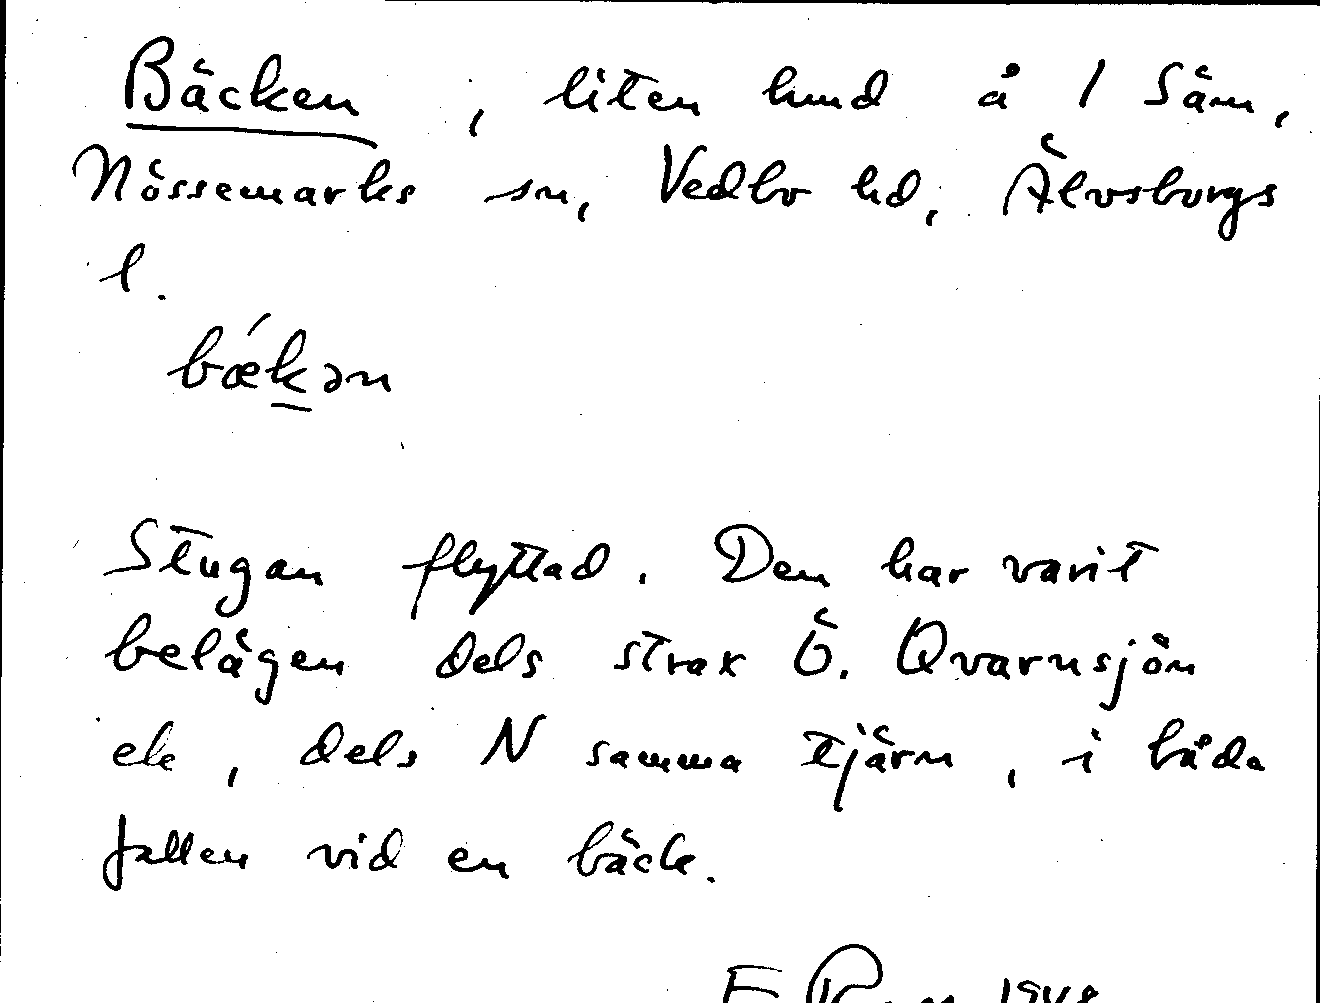 Bäcken, liten lund å 1 Säm,
Nössemarks sn, Vedbo hd, Älvsborgs
l.
bǽk̲ən
Stugan flyttad. Den har varit
belägen dels strax Ö. Qvarnsjön
ek, dels N samma tjärn, i båda
fallen vid en bäck.
E